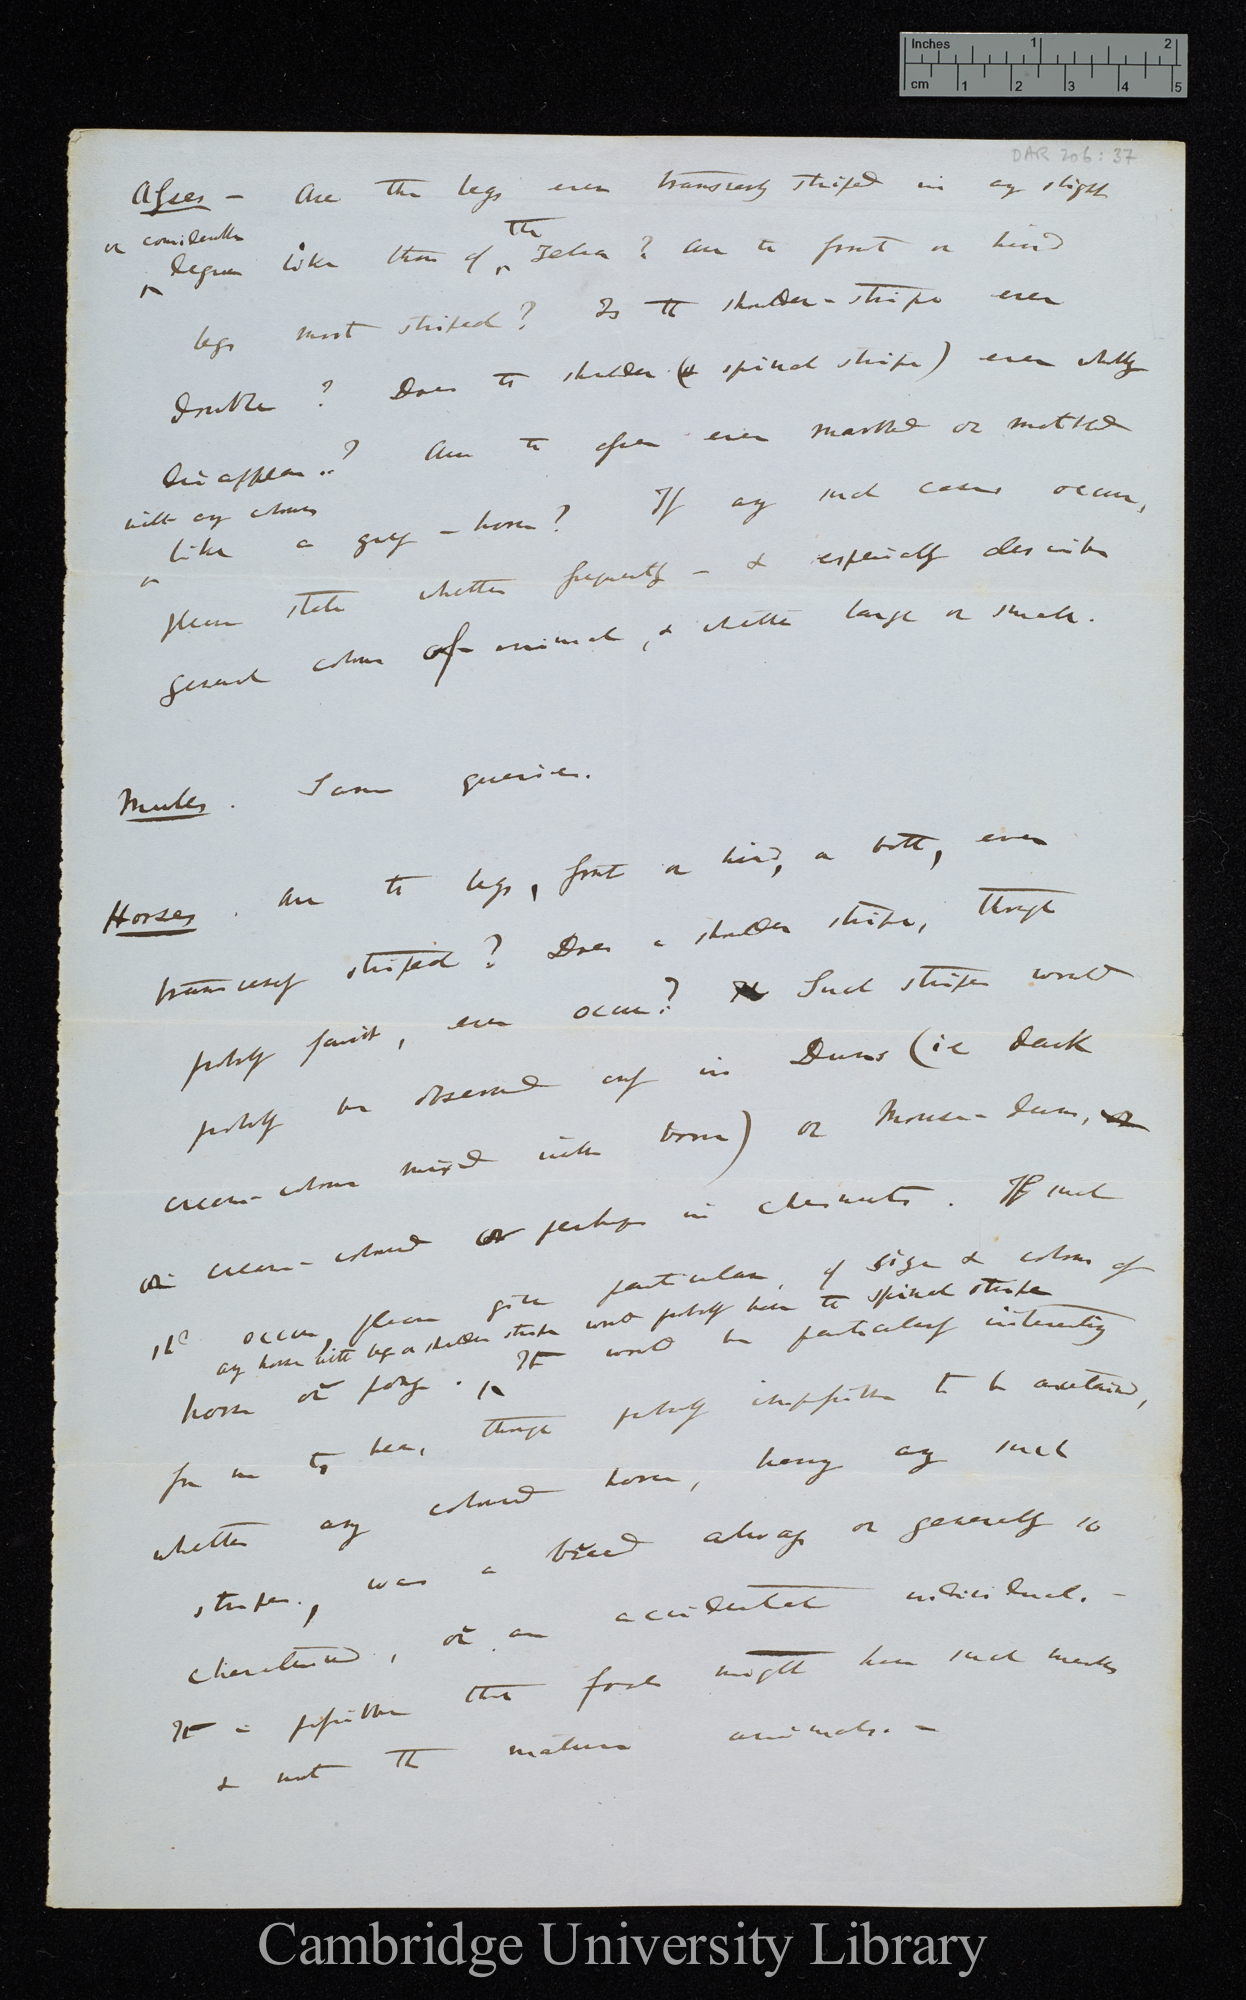 DAR 206: 37
Asses — Are the legs ever transversely striped in any slight
or considerable
degree like those of the Zebra? Are the front or hind
legs most striped? Is the shoulder-stripe ever
double? Does the shoulder (& spinal stripe) ever wholly
disappear..? Are the asses ever marbled or mottled
with any colours
like a grey-horse? If any such cases occur,
please state whether frequently — & especially describe
general colour of animal, & whether large or small.
Mules. Same queries.
Horses. Are the legs, front or hind, or both, ever
transversely striped? Does a shoulder stripe, though
probably faint, ever occur? Such stripes would
probably be observed only in Duns (ie dark
cream-colour mixed with brown) or Mouse-duns, or
or cream-coloured or perhaps in chesnuts. If such
shd occur, please give particulars, of size & colour of
any horse with leg or shoulder stripe would probably have the spinal stripe
horse or pony. It would be particularly interesting
for me to hear, though probably impossible to be ascertained,
whether any coloured horse, having any such
stripes, was a breed always or generally so
charactersed, or an accidental individual. —
It is possible that foals might have such marks
& not the mature animals. —
Inches 1 2
cm 1 2 3 4 5
Cambridge University Library